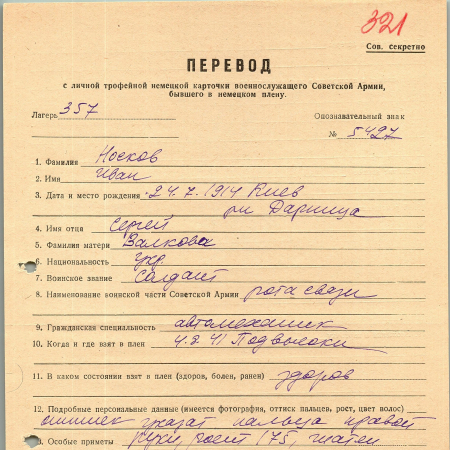 321
Сов. секретно
ПЕРЕВОД
с личной трофейной немецкой карточки военнослужащего Советской Армии,
бывшего в немецком плену.
Лагерь 357
Опознавательный знак
№ 5427
1. Фамилия Носков
2. Имя Иван
3. Дата и место рождения 24.7.1914 Киев
рн Дарница
4. Имя отца Сергей
5. Фамилия матери Валкова
6. Национальность укр
7. Воинское звание Солдат
8. Наименование воинской части Советской Армии рота связи
9. Гражданская специальность автомеханик
10. Когда и где взят в плен 4.8.41 Подвысоки
11. В каком состоянии взят в плен (здоров, болен, ранен) здоров
12. Подробные персональные данные (имеется фотография, оттиск пальца, рост, цвет волос)
указат пальца правой
Особые приметы руки, рост 175, шатен